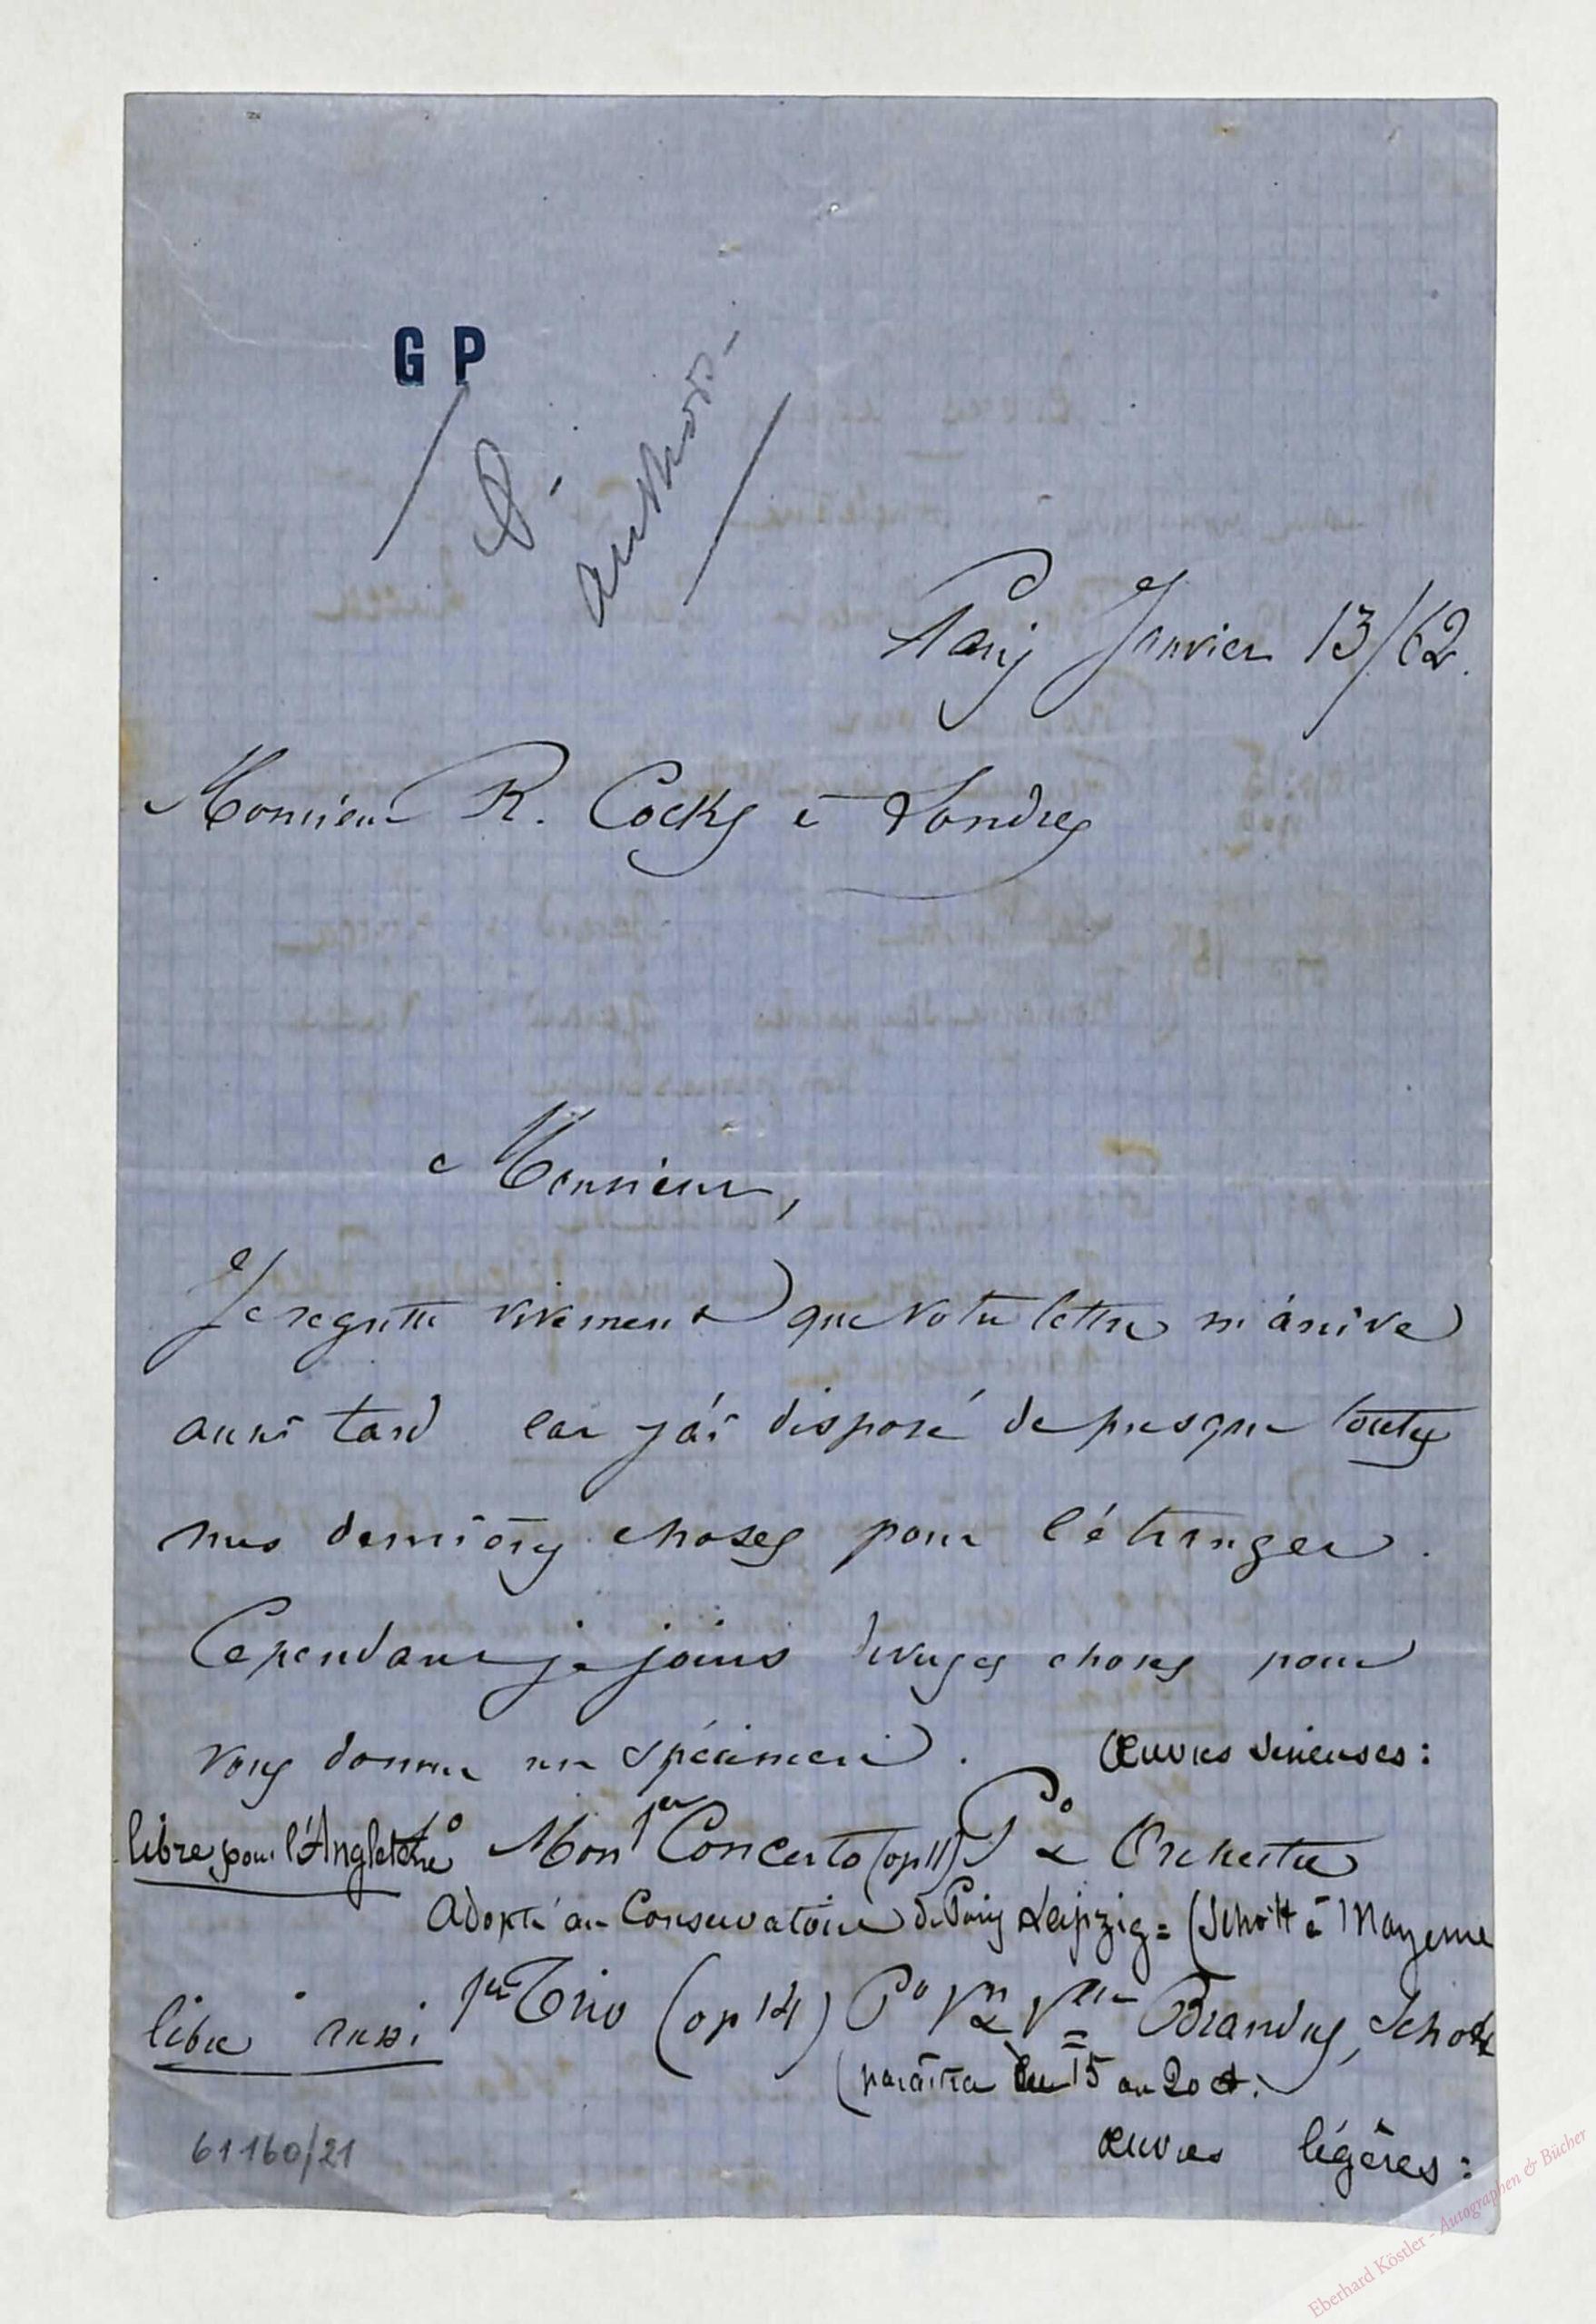 G P
authors-
Paris Janvier 13/62.
Monsieur R. Cocks à Londres
Monsieur,
Je regrette vivement que votre lettre m'arrive
aussi tard car j'ai disposé de presque toutes
mes dernières choses pour l'étranger.
Cependant je joins diverses choses pour
vous donner un spécimen. Œuvres sérieuses:
libre pour l'Angleterre Mon 1er Concerto (op 11) Po & Orchestre
adopté au Conservatoire de Paris & Leipzig = (Schott à Mayence
libre aussi 1er Trio (op 14) Po Vn & Vlle = Brandus, Schott
(paraîtra du 15 au 20 ct.
œuvres légères:
61160/21
Eberhard Köstler - Autographen & Bücher